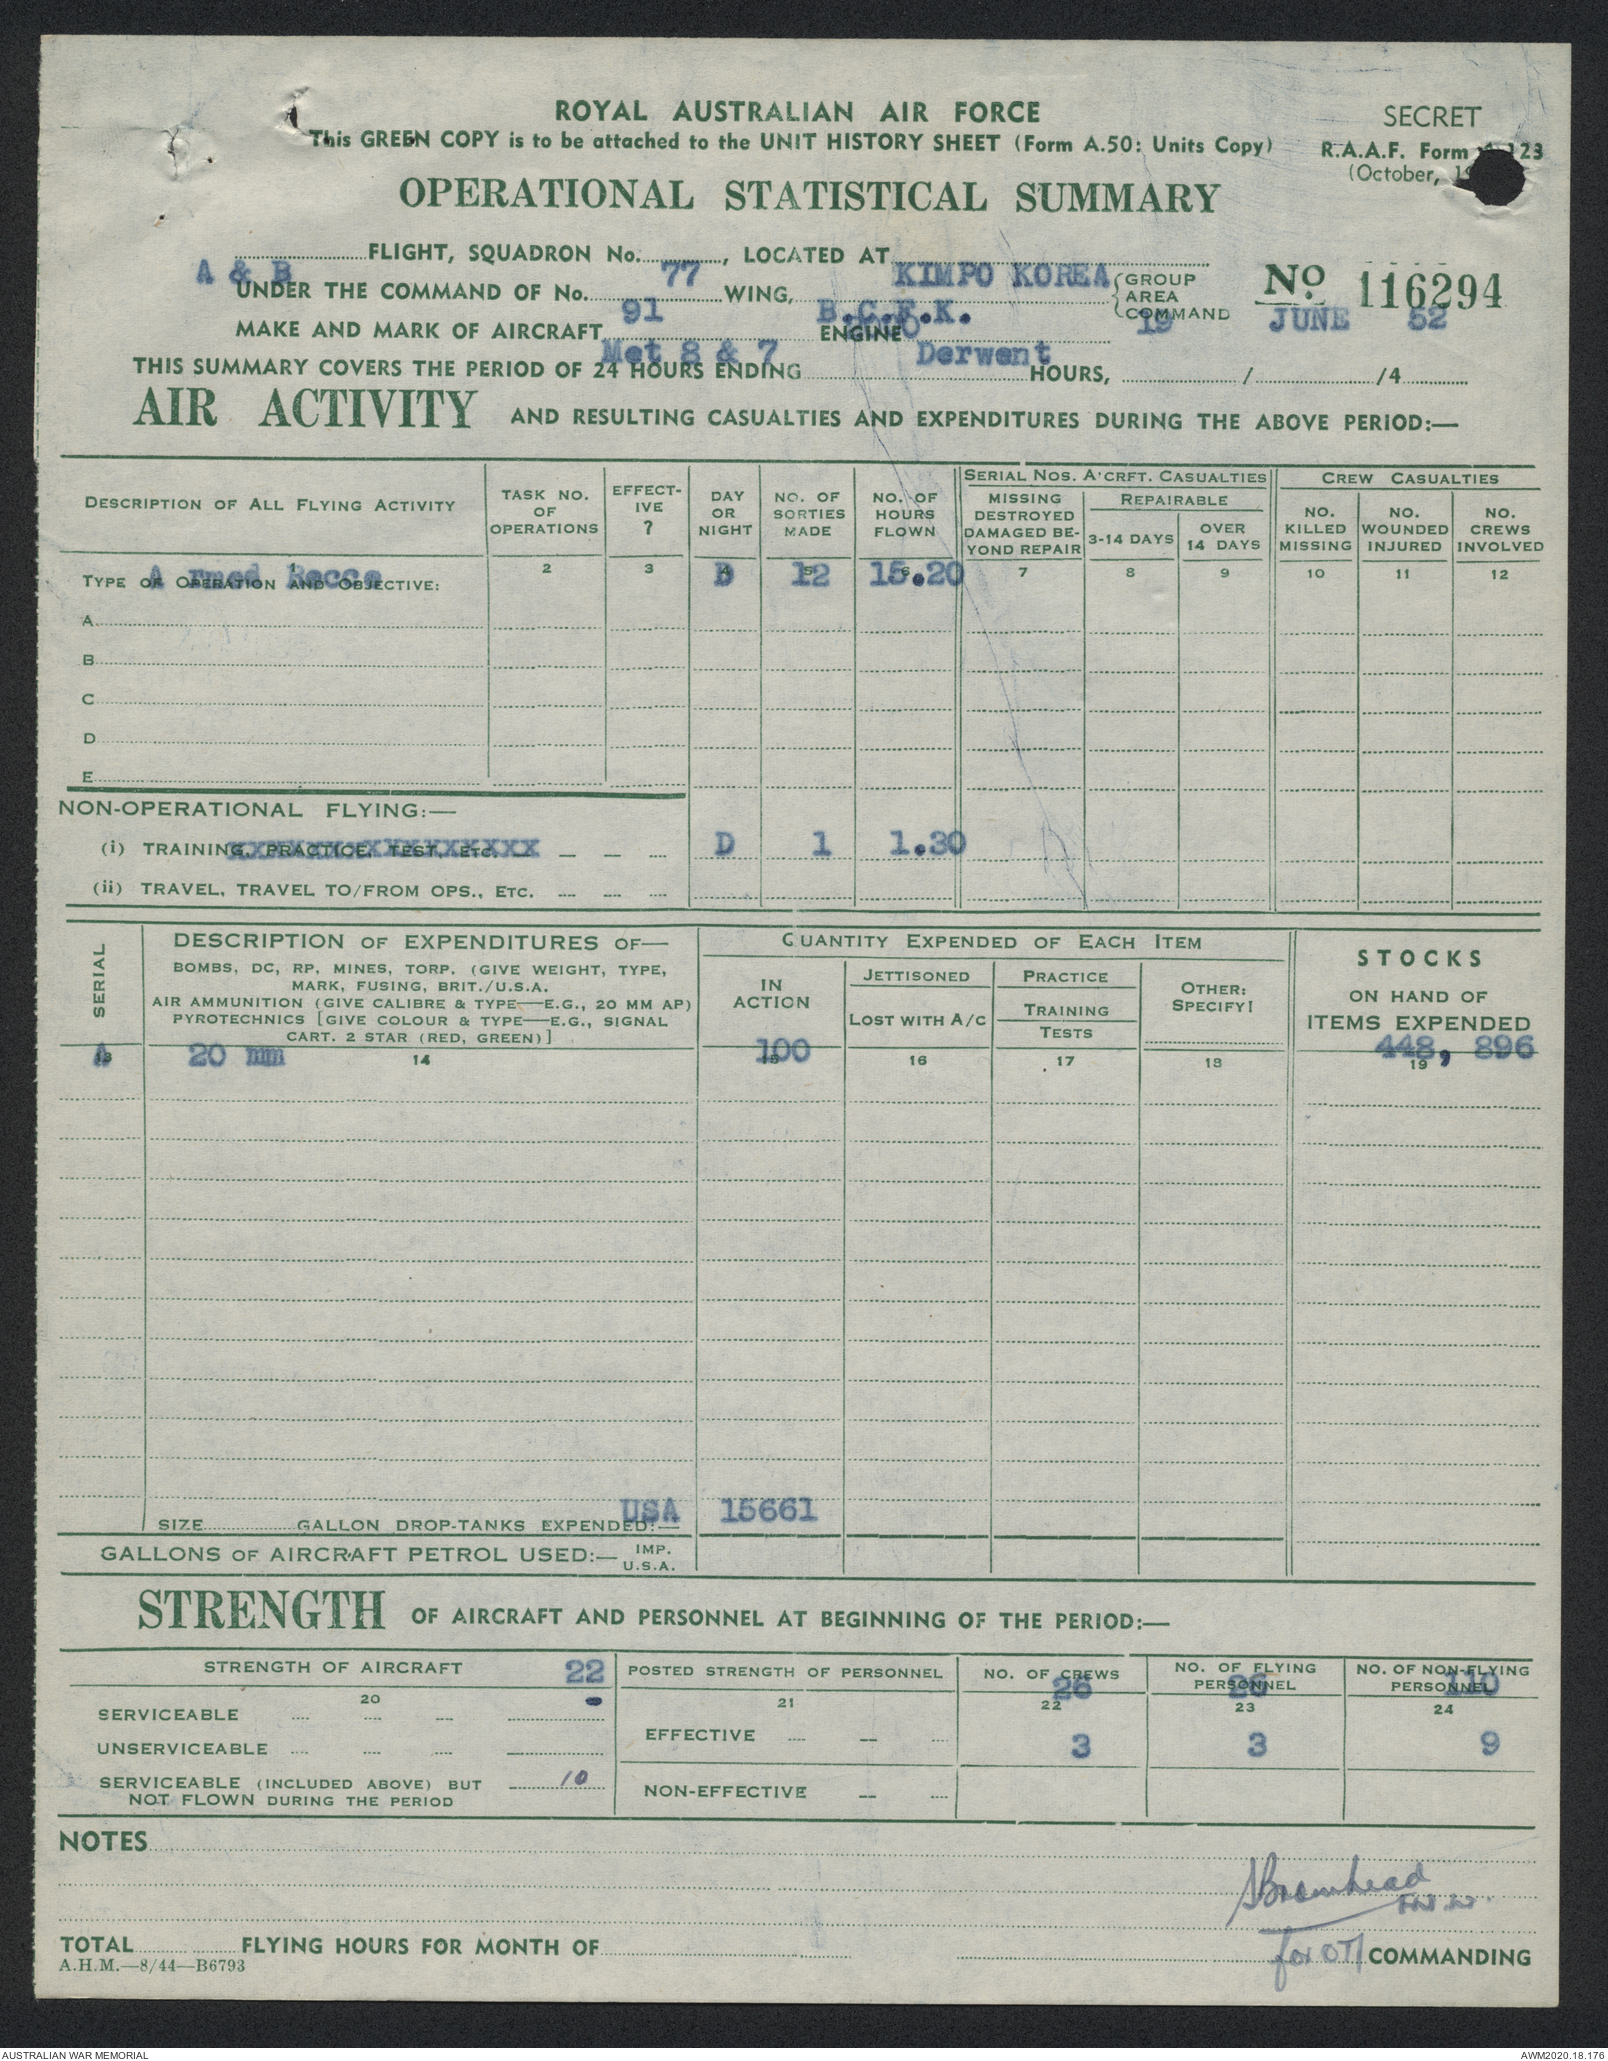 ROYAL AUSTRALIAN AIR FORCE
This GREEN COPY is to be attached to the UNIT HISTORY SHEET (Form A.50: Units Copy)
SECRET
R.A.A.F. Form 123
(October,
OPERATIONAL STATISTICAL SUMMARY
A & B FLIGHT, SQUADRON No. 77, LOCATED AT KIMPO KOREA
UNDER THE COMMAND OF No. 91 WING, B.C.F.K. GROUP AREA COMMAND
No 116294
MAKE AND MARK OF AIRCRAFT Met 8 & 7 ENGINE Derwent
THIS SUMMARY COVERS THE PERIOD OF 24 HOURS ENDING HOURS, 19 / JUNE /4 52
AIR ACTIVITY AND RESULTING CASUALTIES AND EXPENDITURES DURING THE ABOVE PERIOD:—
DESCRIPTION OF ALL FLYING ACTIVITY
TASK NO. OF OPERATIONS
EFFECTIVE ?
DAY OR NIGHT
NO. OF SORTIES MADE
NO. OF HOURS FLOWN
SERIAL NOS. A'CRFT. CASUALTIES
MISSING DESTROYED DAMAGED BEYOND REPAIR
REPAIRABLE
3-14 DAYS
OVER 14 DAYS
CREW CASUALTIES
NO. KILLED MISSING
NO. WOUNDED INJURED
NO. CREWS INVOLVED
1 2 3 4 5 6 7 8 9 10 11 12
TYPE OF OPERATION AND OBJECTIVE:
A rmed Recce D 12 15.20
A
B
C
D
E
NON-OPERATIONAL FLYING:—
(i) TRAINING, PRACTICE, TEST, ETC. D 1 1.30
(ii) TRAVEL, TRAVEL TO/FROM OPS., ETC.
SERIAL
DESCRIPTION OF EXPENDITURES OF—
BOMBS, DC, RP, MINES, TORP. (GIVE WEIGHT, TYPE,
MARK, FUSING, BRIT./U.S.A.
AIR AMMUNITION (GIVE CALIBRE & TYPE—E.G., 20 MM AP)
PYROTECHNICS [GIVE COLOUR & TYPE—E.G., SIGNAL
CART. 2 STAR (RED, GREEN)]
QUANTITY EXPENDED OF EACH ITEM
IN ACTION
JETTISONED
LOST WITH A/C
PRACTICE
TRAINING
TESTS
OTHER: SPECIFY!
STOCKS
ON HAND OF
ITEMS EXPENDED
13 14 15 16 17 18 19
A 20 mm 100 448, 896
SIZE GALLON DROP-TANKS EXPENDED:—
USA 15661
GALLONS OF AIRCRAFT PETROL USED:— IMP. U.S.A.
STRENGTH OF AIRCRAFT AND PERSONNEL AT BEGINNING OF THE PERIOD:—
STRENGTH OF AIRCRAFT 22
20
SERVICEABLE -
UNSERVICEABLE
SERVICEABLE (INCLUDED ABOVE) BUT 10
NOT FLOWN DURING THE PERIOD
POSTED STRENGTH OF PERSONNEL
NO. OF CREWS
NO. OF FLYING PERSONNEL
NO. OF NON-FLYING PERSONNEL
26 26 110
21 22 23 24
EFFECTIVE 3 3 9
NON-EFFECTIVE
NOTES
Bromhead
for OTI COMMANDING
TOTAL FLYING HOURS FOR MONTH OF
A.H.M.—8/44—B6793
AUSTRALIAN WAR MEMORIAL
AWM2020.18.176